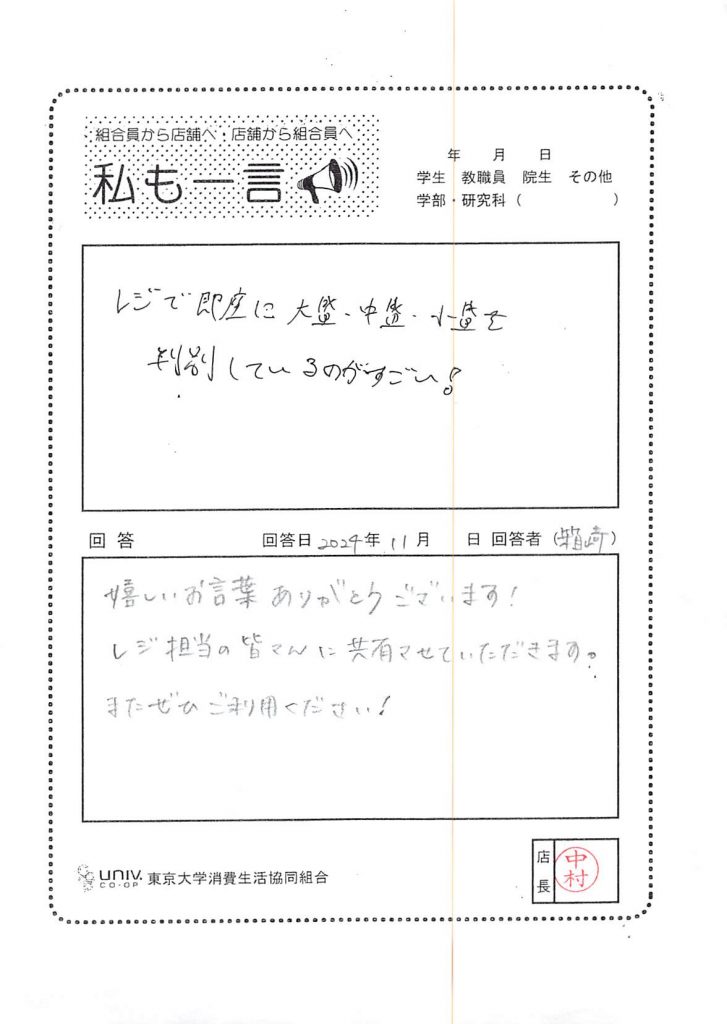 組合員から店舗へ・店舗から組合員へ
私も一言
年 月 日
学生 教職員 院生 その他
学部・研究科( )
レジで即座に大盛・中盛・小盛を
判別しているのがすごい!
回答 回答日 2024年 11月 日 回答者(箱崎)
嬉しいお言葉ありがとうございます!
レジ担当の皆さんに共有させていただきます。
またぜひご利用ください!
UNIV. CO-OP 東京大学消費生活協同組合
店長 中村